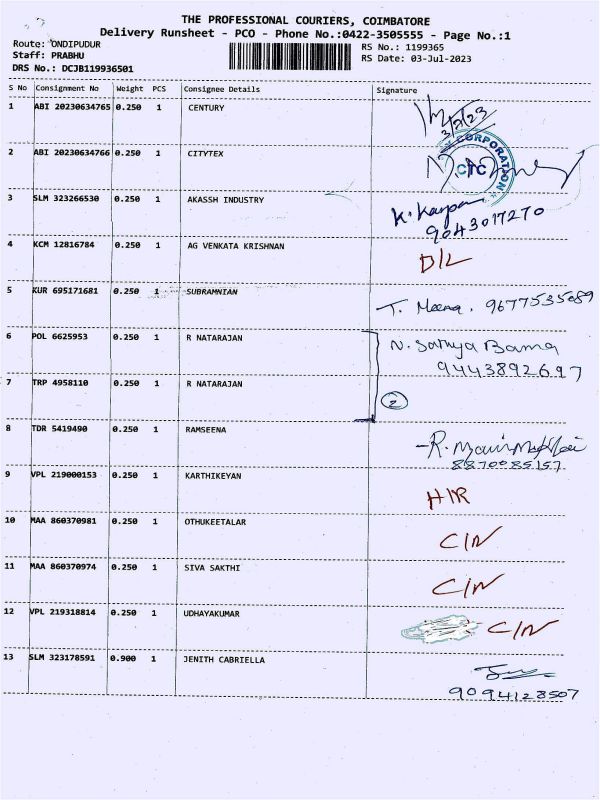 THE PROFESSIONAL COURIERS, COIMBATORE
Delivery Runsheet - PCO - Phone No.:0422-3505555 - Page No.:1
Route: ONDIPUDUR
Staff: PRABHU
DRS No.: DCJB119936501
RS No.: 1199365
RS Date: 03-Jul-2023
S No Consignment No Weight PCS Consignee Details Signature
1 ABI 20230634765 0.250 1 CENTURY
3/7/23
2 ABI 20230634766 0.250 1 CITYTEX
CORPORATION
CTC
3 SLM 323266530 0.250 1 AKASSH INDUSTRY
9043017270
4 KCM 12816784 0.250 1 AG VENKATA KRISHNAN D/L
5 KUR 695171681 0.250 1 SUBRAMNIAN T. Meena. 9677535089
6 POL 6625953 0.250 1 R NATARAJAN N. Sathya Bama
9443892697
7 TRP 4958110 0.250 1 R NATARAJAN 2
8 TDR 5419490 0.250 1 RAMSEENA
8870085157
9 VPL 219000153 0.250 1 KARTHIKEYAN
10 MAA 860370981 0.250 1 OTHUKEETALAR C/N
11 MAA 860370974 0.250 1 SIVA SAKTHI C/N
12 VPL 219318814 0.250 1 UDHAYAKUMAR C/N
13 SLM 323178591 0.900 1 JENITH CABRIELLA
9094128507